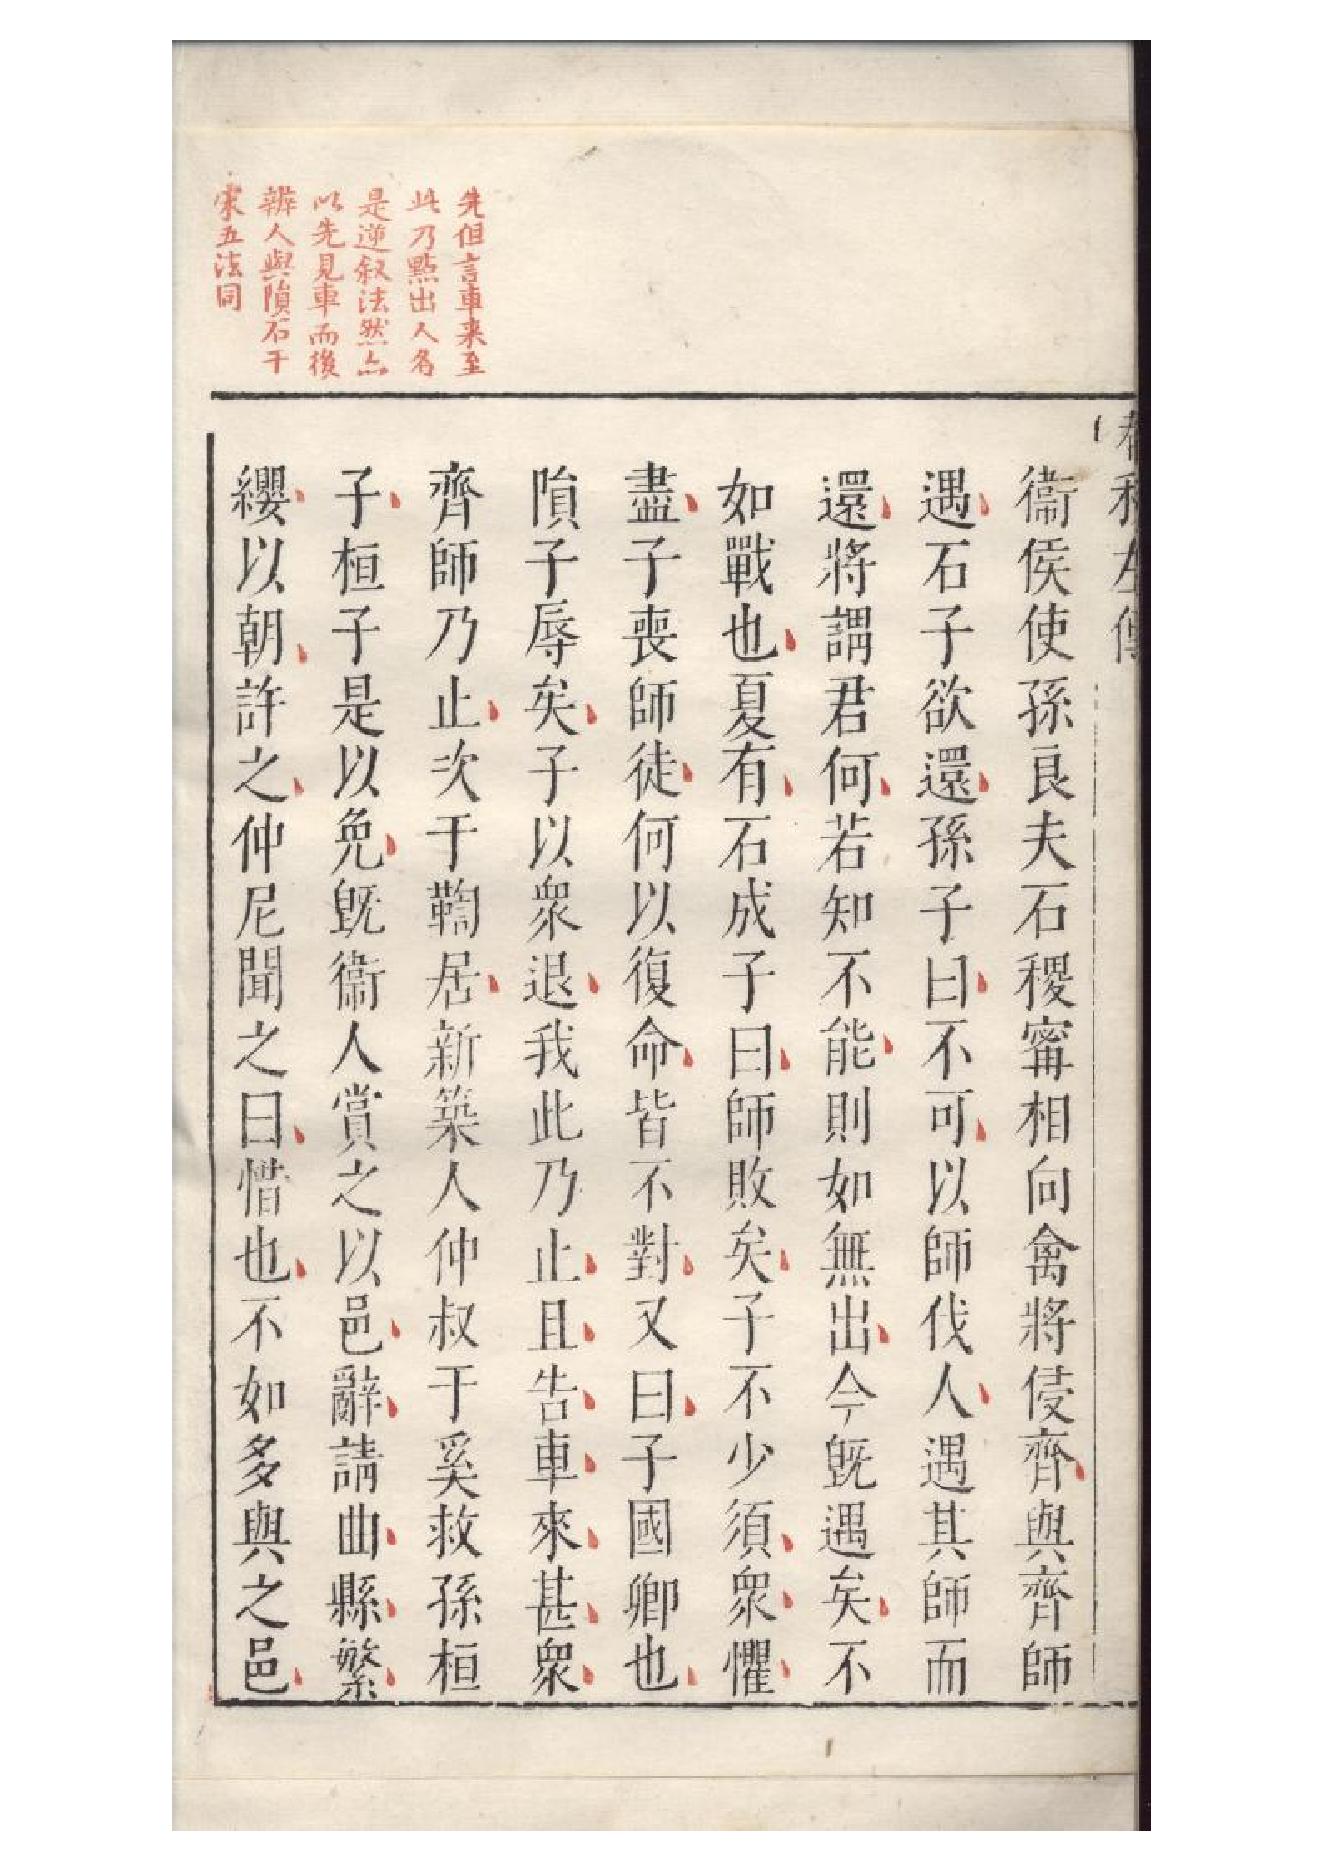 春秋左傳
衞侯使孫良夫石稷甯相向禽將侵齊與齊師
遇石子欲還孫子曰不可以師伐人遇其師而
還將謂君何若知不能則如無出今旣遇矣不
如戰也夏有石成子曰師敗矣子不少須衆懼
盡子喪師徒何以復命皆不對又曰子國卿也
隕子辱矣子以衆退我此乃止且告車來甚衆
齊師乃止次于鞫居新築人仲叔于奚救孫桓
子桓子是以免旣衞人賞之以邑辭請曲縣繁
纓以朝許之仲尼聞之曰惜也不如多與之邑
先但言車来至
此乃點出人名
是逆叙法然亦
以先見車而後
辨人與隕石于
宋五法同